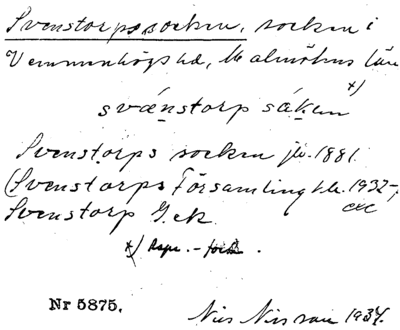 Svenstorps socken, socken i
Vemmenhögs hd, Malmöhus län
svænstorp såken *)
Svenstorps socken jb. 1881
(Svenstorps Församling kb. 1932-,
Svenstorp G. ek
*) Rspr. -
Nr 5875.
Nils Nilsson 1934.